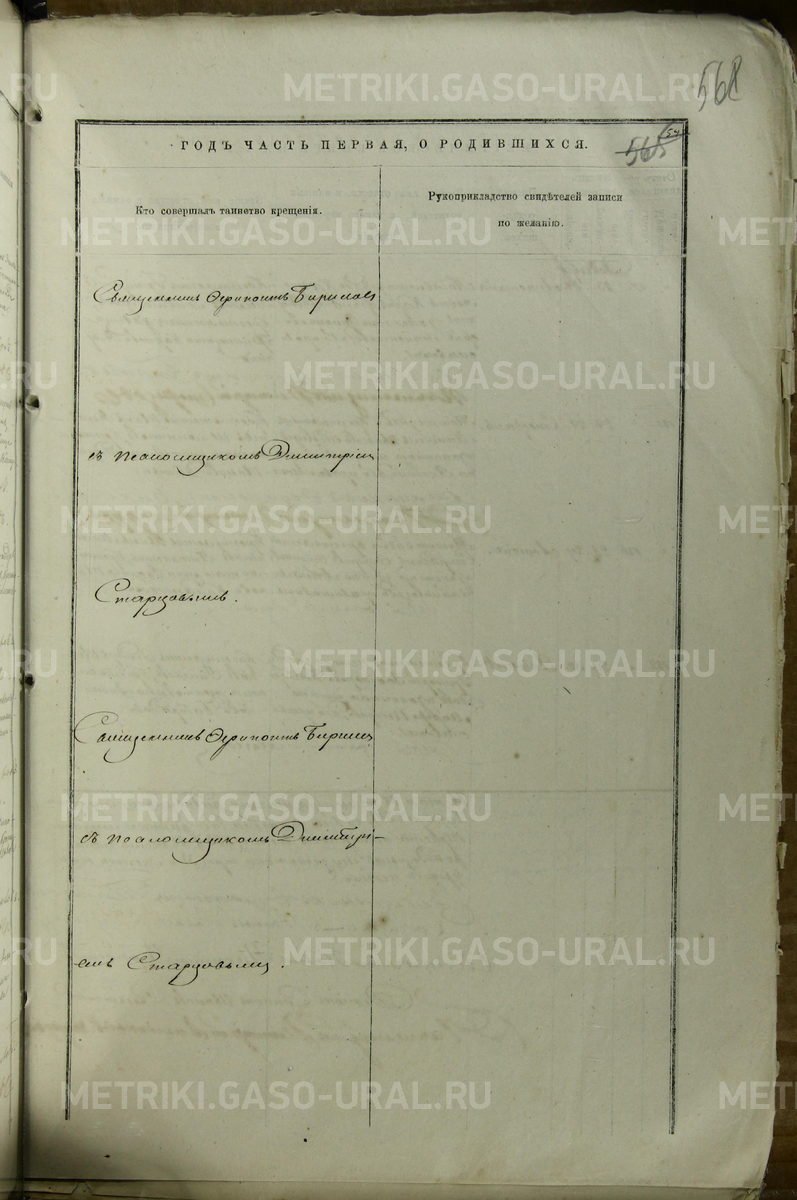 568
565
ГОДЪ ЧАСТЬ ПЕРВАЯ, О РОДИВШИХСЯ.
Кто совершалъ таинство крещенія.
Рукоприкладство свидѣтелей записи
по желанію.
Священникъ Ѳерапонтъ
съ псаломщикомъ Димитріем
Старцовымъ.
Священникъ Ѳерапонтъ
съ псаломщикомъ Димитрі-
емъ Старцовымъ.
METRIKI.GASO-URAL.RU